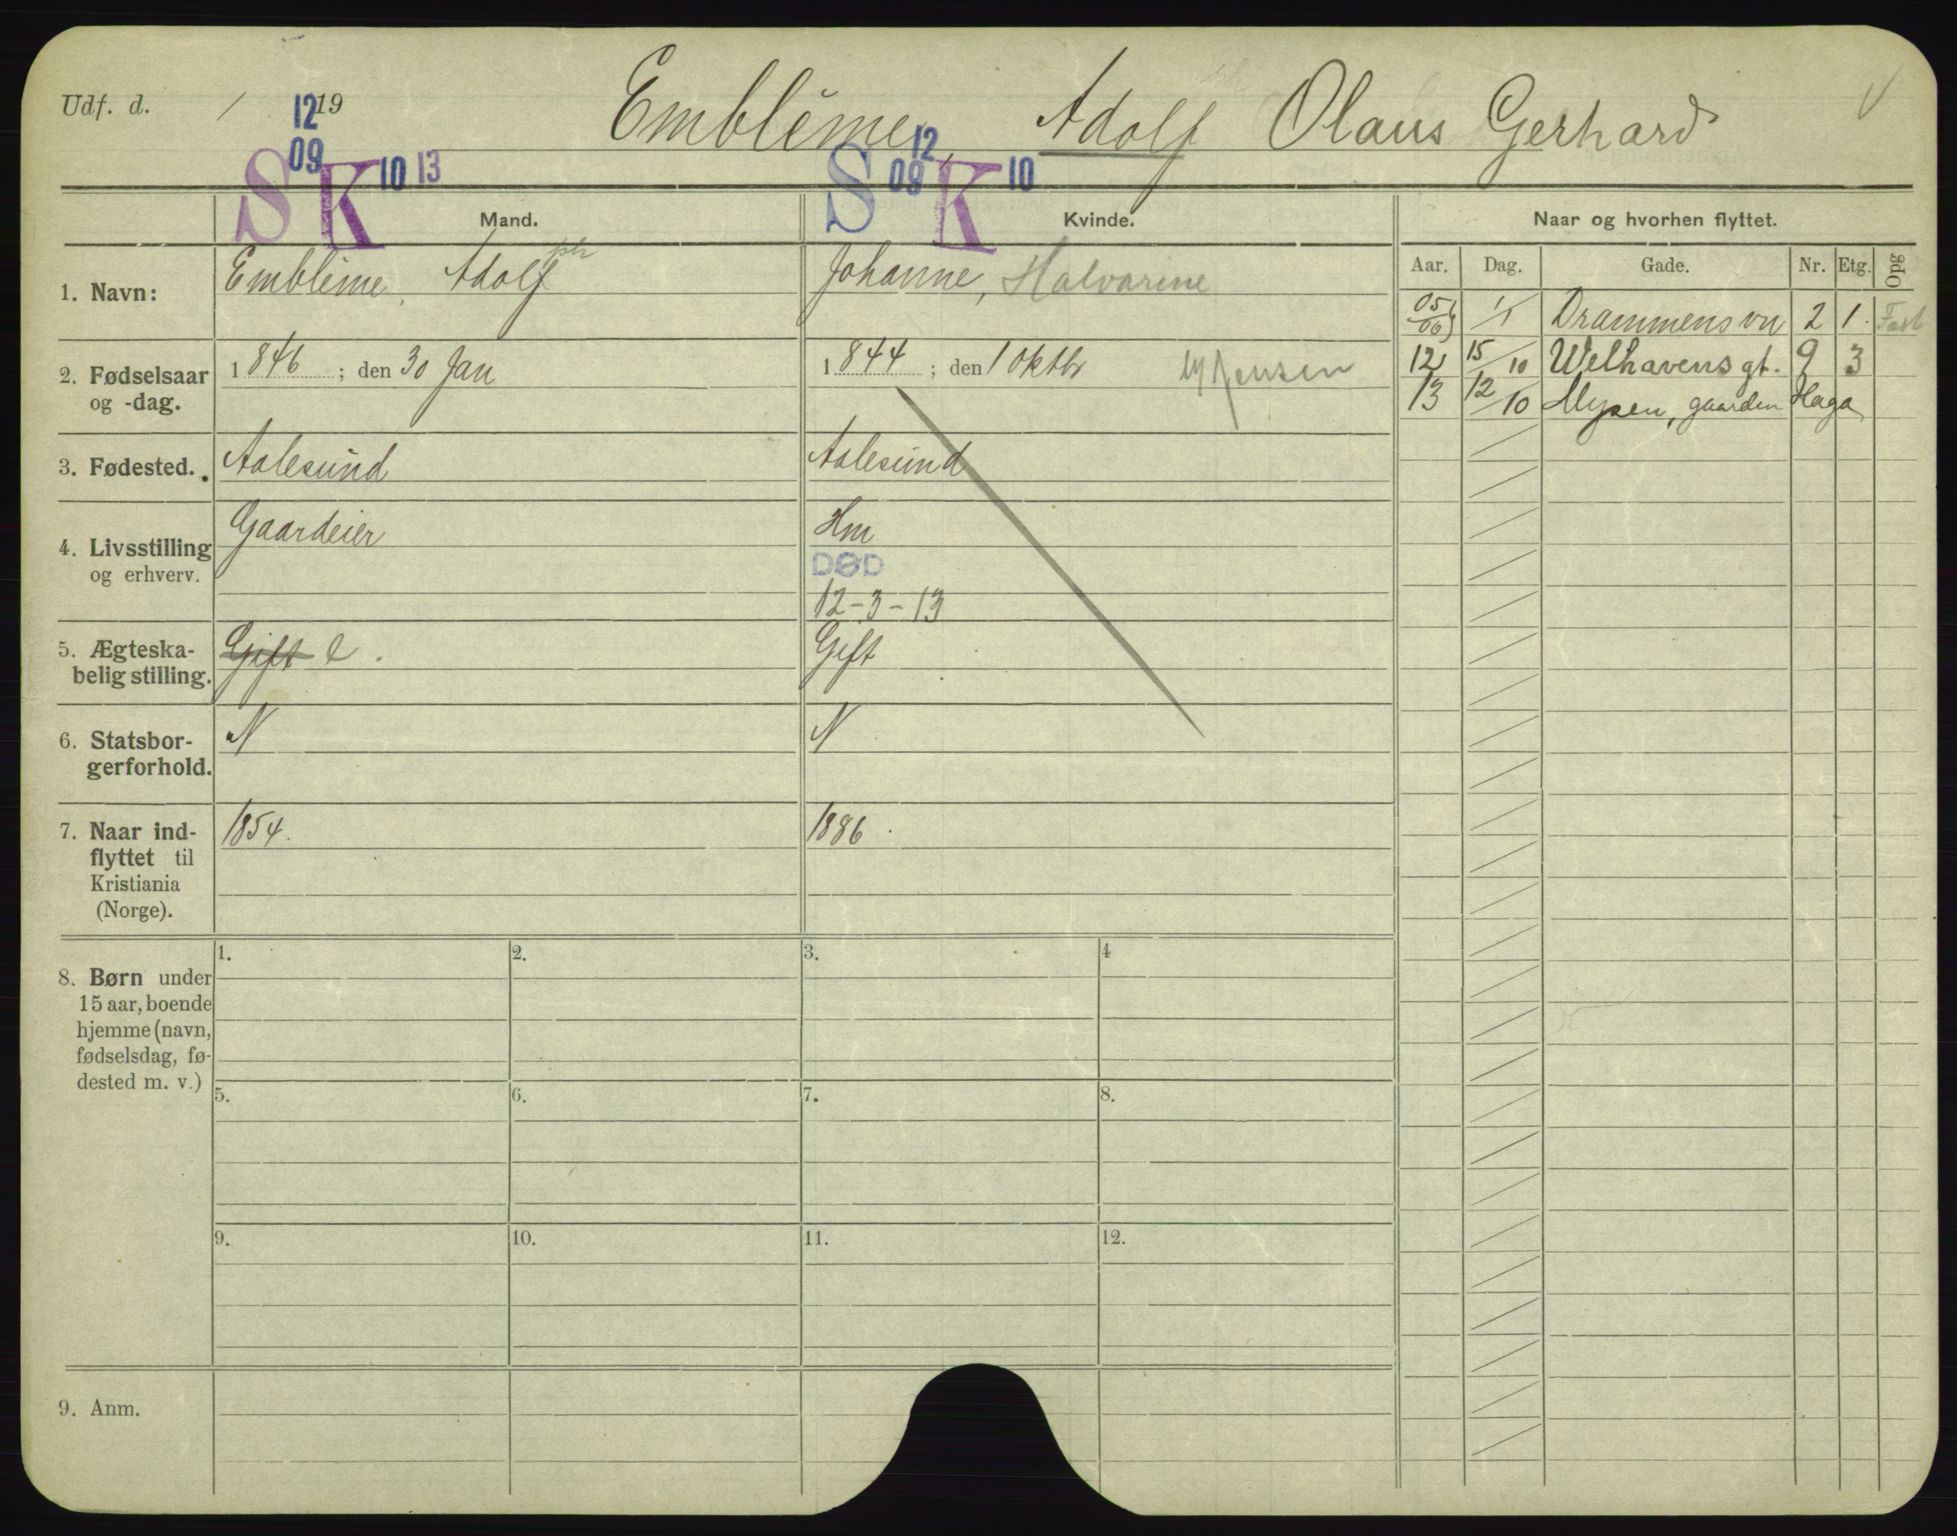 Udf. d. / 19 Emblème, Adolf Olaus Gerhard
12 09 S K 10 13
S 12 09 K 10
Mand. Kvinde. Naar og hvorhen flyttet.
Aar. Dag. Gade. Nr. Etg. Opg
1. Navn: Emblème, Adolf Johanne, Halvarine
05/06 1/1 Drammensvn 2 1.
12 15/10 Welhavens gt. 9 3
13 12/10 Mysen, gaarden Haga
2. Fødselsaar 1846 ; den 30 Jan 1844 ; den 1 oktbr Jensen
og -dag.
3. Fødested. Aalesund Aalesund
4. Livsstilling Gaardeier Hm
og erhverv.
DØD
12-3-13
5. Ægteska-
belig stilling. Gift e. Gift
6. Statsbor-
gerforhold. N N
7. Naar ind- 1854. 1886.
flyttet til
Kristiania
(Norge).
8. Børn under
15 aar, boende
hjemme (navn,
fødselsdag, fø-
dested m. v.)
1. 2. 3. 4
5. 6. 7. 8.
9. 10. 11. 12.
9. Anm.